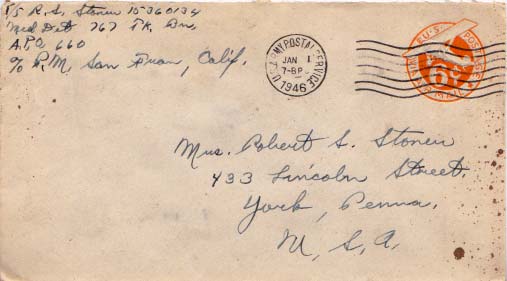 T/5 R. S. Stoner 15360134
Med Det 767 Tk. Bn.
A.P.O. 660
c/o P.M., San Fran, Calif.
U.S. ARMY POSTAL SERVICE
JAN 1
7-8 P
1946
U.S. POSTAGE
6¢
AIR MAIL
Mrs. Robert S. Stoner
433 Lincoln Street
York, Penna.
U. S. A.